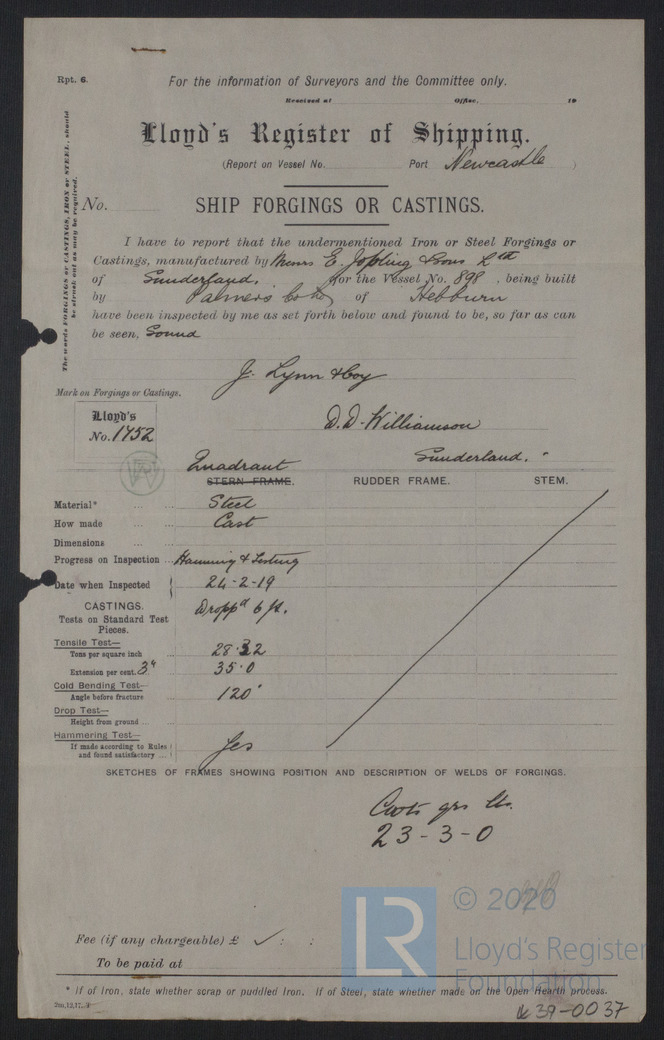 Rpt. 6.
For the information of Surveyors and the Committee only.
Received at Office, 19
Lloyd's Register of Shipping.
(Report on Vessel No. Port Newcastle )
The words FORGINGS or CASTINGS, IRON or STEEL, should be struck out as may be required.
No.
SHIP FORGINGS OR CASTINGS.
I have to report that the undermentioned Iron or Steel Forgings or
Castings, manufactured by Messrs E. Jopling & Sons Ltd
of Sunderland, for the Vessel No. 898, being built
by Palmers Co Ltd of Hebburn
have been inspected by me as set forth below and found to be, so far as can
be seen, Sound
J. Lynn & Coy
Mark on Forgings or Castings.
Lloyd's
No. 1752
D. D. Williamson
Sunderland.
Quadrant
STERN FRAME. RUDDER FRAME. STEM.
Material* Steel
How made Cast
Dimensions
Progress on Inspection Hamming & Testing
Date when Inspected 24-2-19
CASTINGS. Dropp'd 6 ft.
Tests on Standard Test
Pieces.
Tensile Test—
Tons per square inch 28.32
Extension per cent. 3" 35.0
Cold Bending Test—
Angle before fracture 120°
Drop Test—
Height from ground
Hammering Test—
If made according to Rules
and found satisfactory Yes
SKETCHES OF FRAMES SHOWING POSITION AND DESCRIPTION OF WELDS OF FORGINGS.
Cwts qrs lbs.
23-3-0
© 2020
LR
Lloyd's Register
Foundation
Fee (if any chargeable) £ ✓ : :
To be paid at
* If of Iron, state whether scrap or puddled Iron. If of Steel, state whether made on the Open Hearth process.
2m,12,17.
39-0037